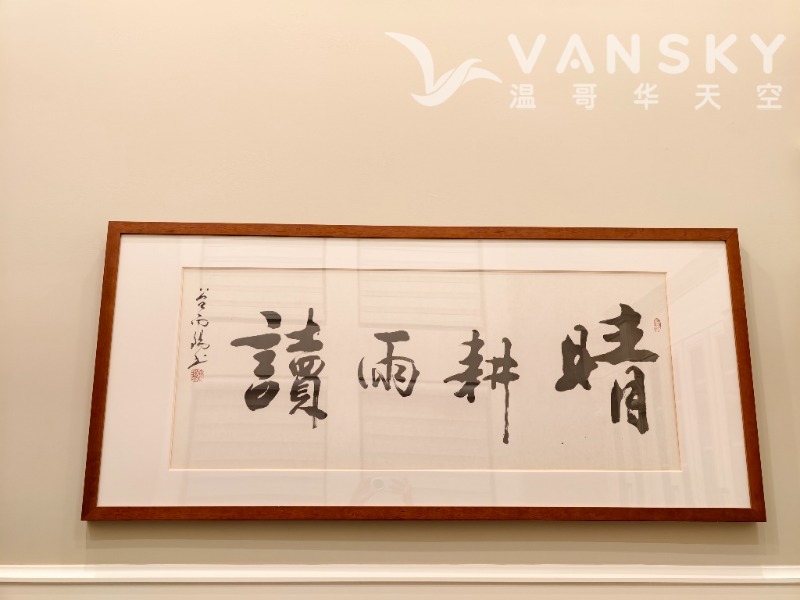 VANSKY
温哥华天空
晴耕雨讀